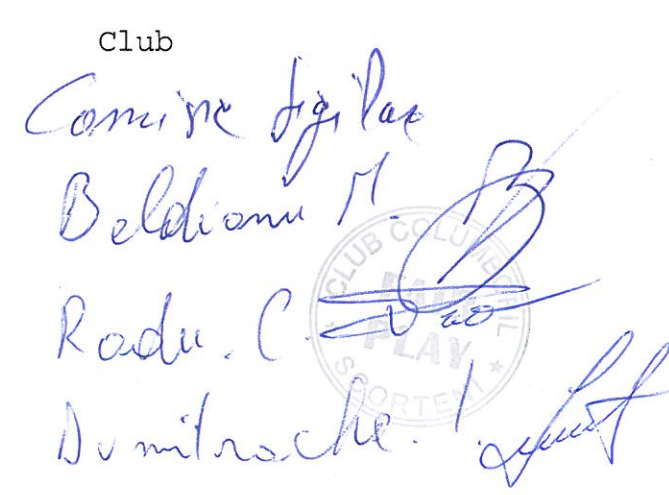 Club
Comisie sigilare
Beldianu M.
Radu. C.
Dumitrache. I.
CLUB COLUMBOFIL
FAIR PLAY
SCORTENI